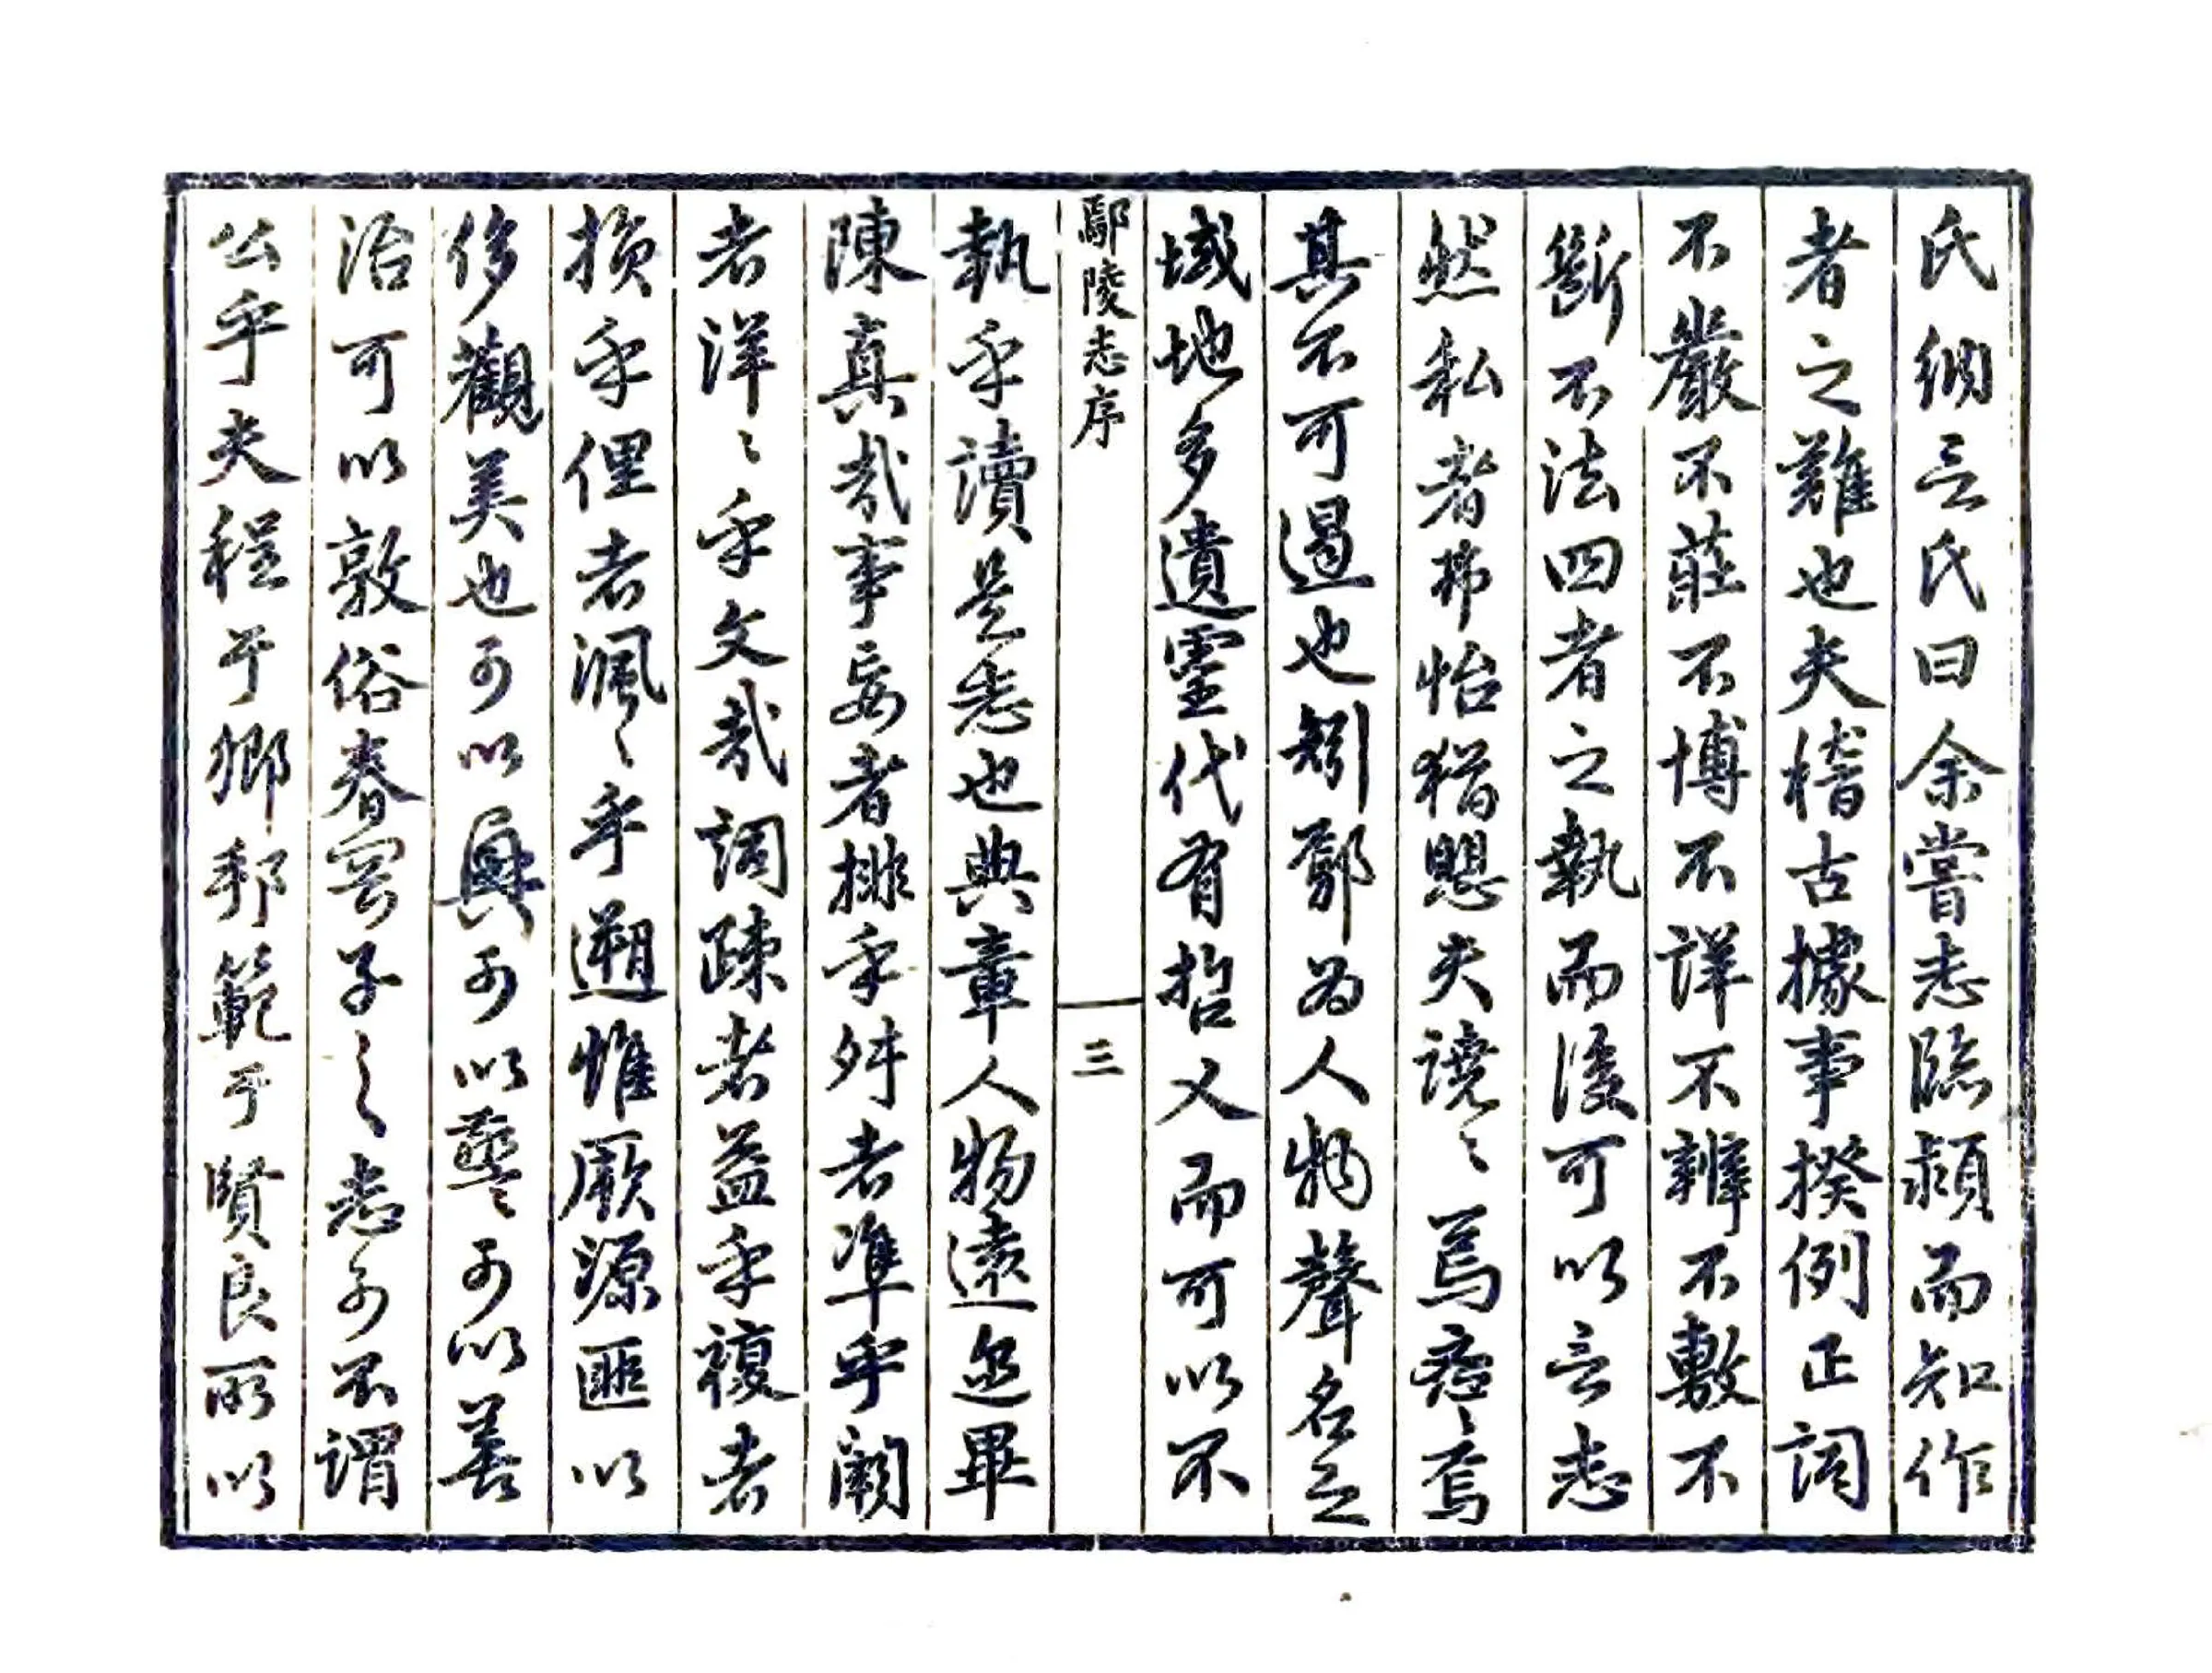 氏網云氏曰余嘗志臨潁而知作
者之難也夫稽古據事揆例正詞
不嚴不莊不博不詳不辨不敷不
斷不法四者之執而後可以言志
然私者弗怡猾思夫譊〻焉焉
其不可遏也矧鄢為人物聲名之
域地多遺靈代有哲乂而可以不
鄢陵志序
三
執乎讀是志也典章人物遠迩畢
陳真哉事妄者排乎舛者準乎闕
者洋〻乎文哉詞疎者益乎複者
損乎俚者渢〻乎遡惟厥源匪以
侈觀美也可以興可以可以善
治可以敦俗春寰子之志可不謂
公乎夫程于鄉邦範于賢良所以